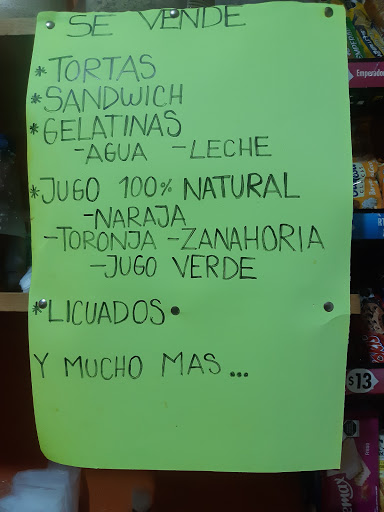 SE VENDE
*TORTAS
*SANDWICH
*GELATINAS
-AGUA -LECHE
*JUGO 100% NATURAL
-NARAJA
-TORONJA -ZANAHORIA
-JUGO VERDE
*LICUADOS
Y MUCHO MAS...
Emperador
$13